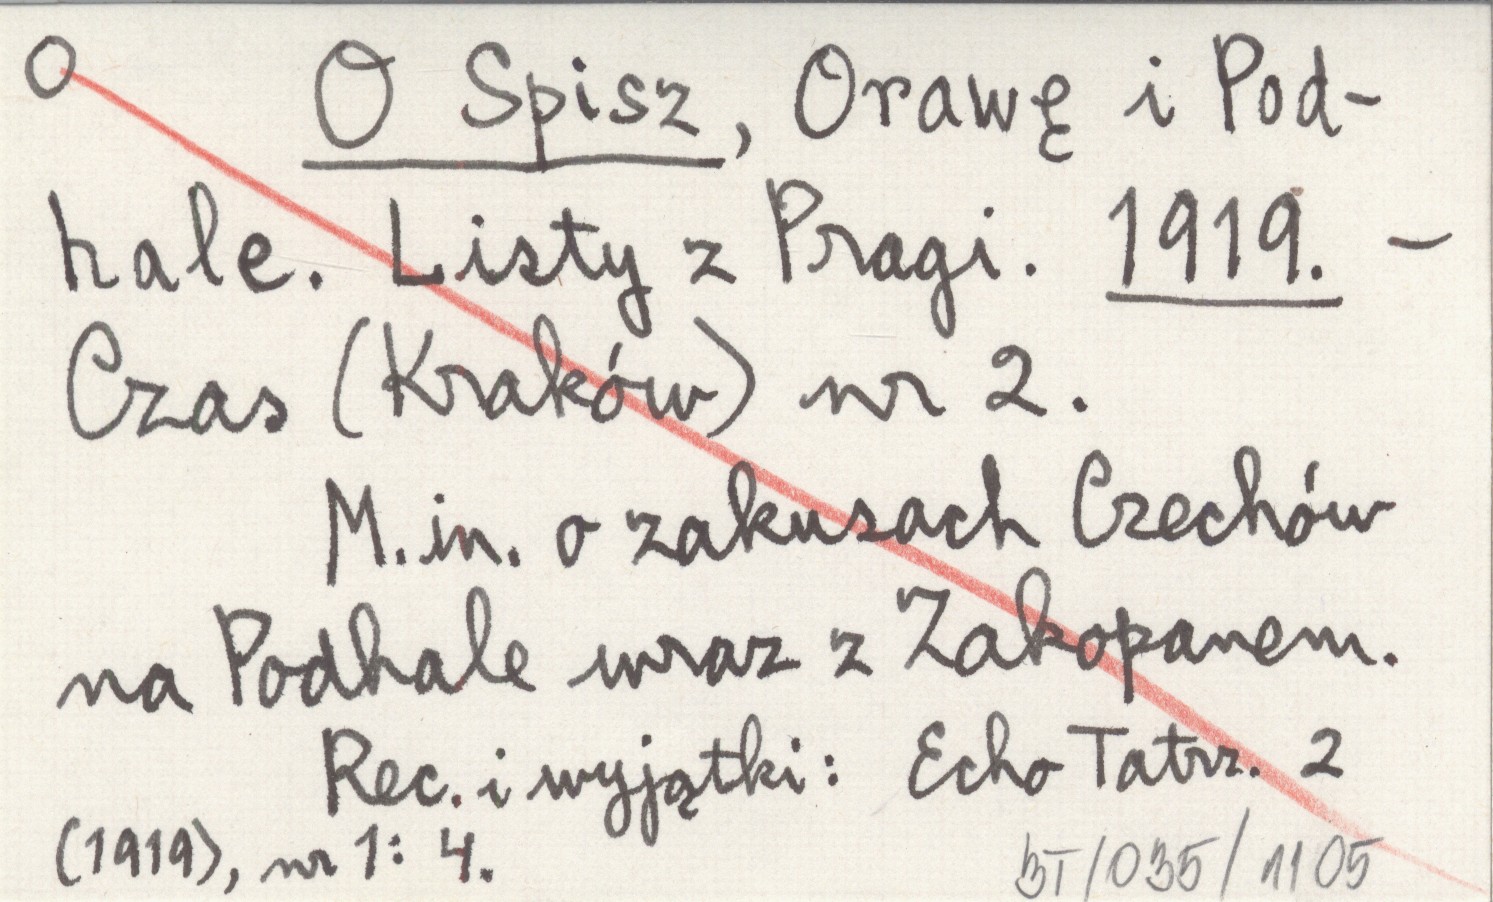 O O Spisz, Orawę i Pod-
hale. Listy z Pragi. 1919. –
Czas (Kraków) nr 2.
M.in. o zakusach Czechów
na Podhale wraz z Zakopanem.
Rec. i wyjątki: Echo Tatrz. 2
(1919), nr 1: 4.
BT/035/1105